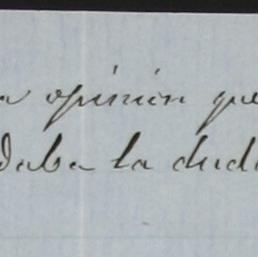 a opinión que
daba la duda